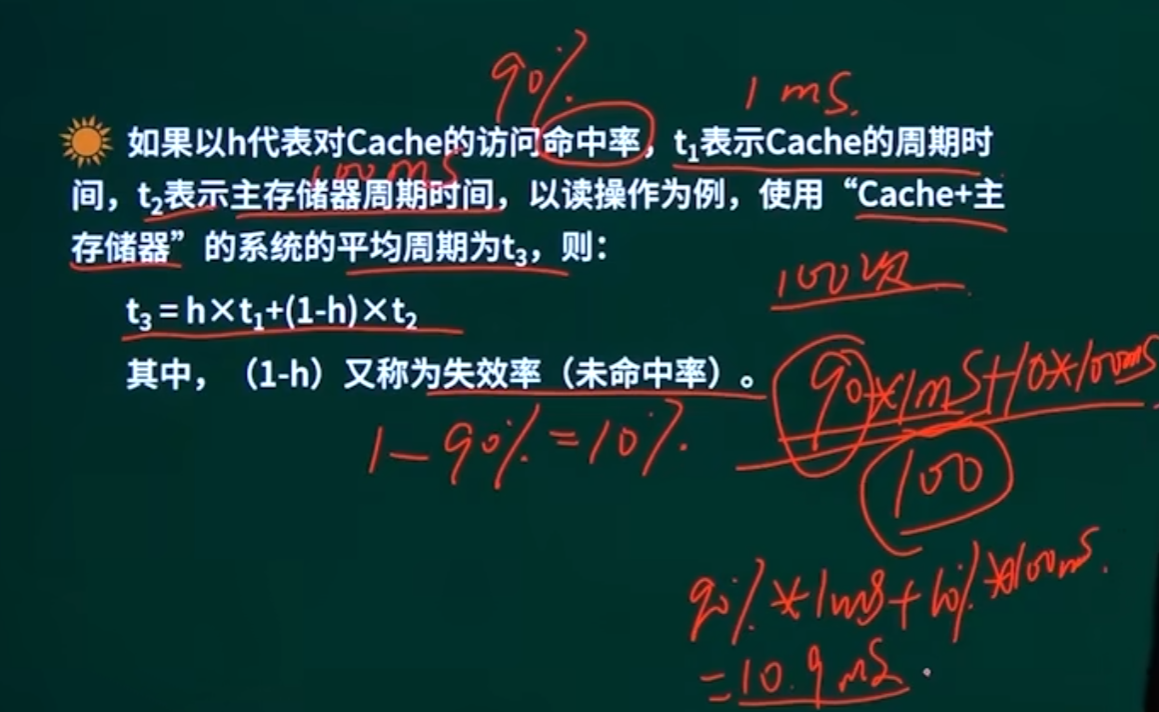 90%
1ms.
如果以h代表对Cache的访问命中率，t₁表示Cache的周期时
100ms
间，t₂表示主存储器周期时间，以读操作为例，使用“Cache+主
存储器”的系统的平均周期为t₃，则：
100次
t₃ = h×t₁+(1-h)×t₂
其中，（1-h）又称为失效率（未命中率）。
90*1ms+10*100ms
100
1-90%=10%.
90%*1ms+10%*100ms.
=10.9ms.